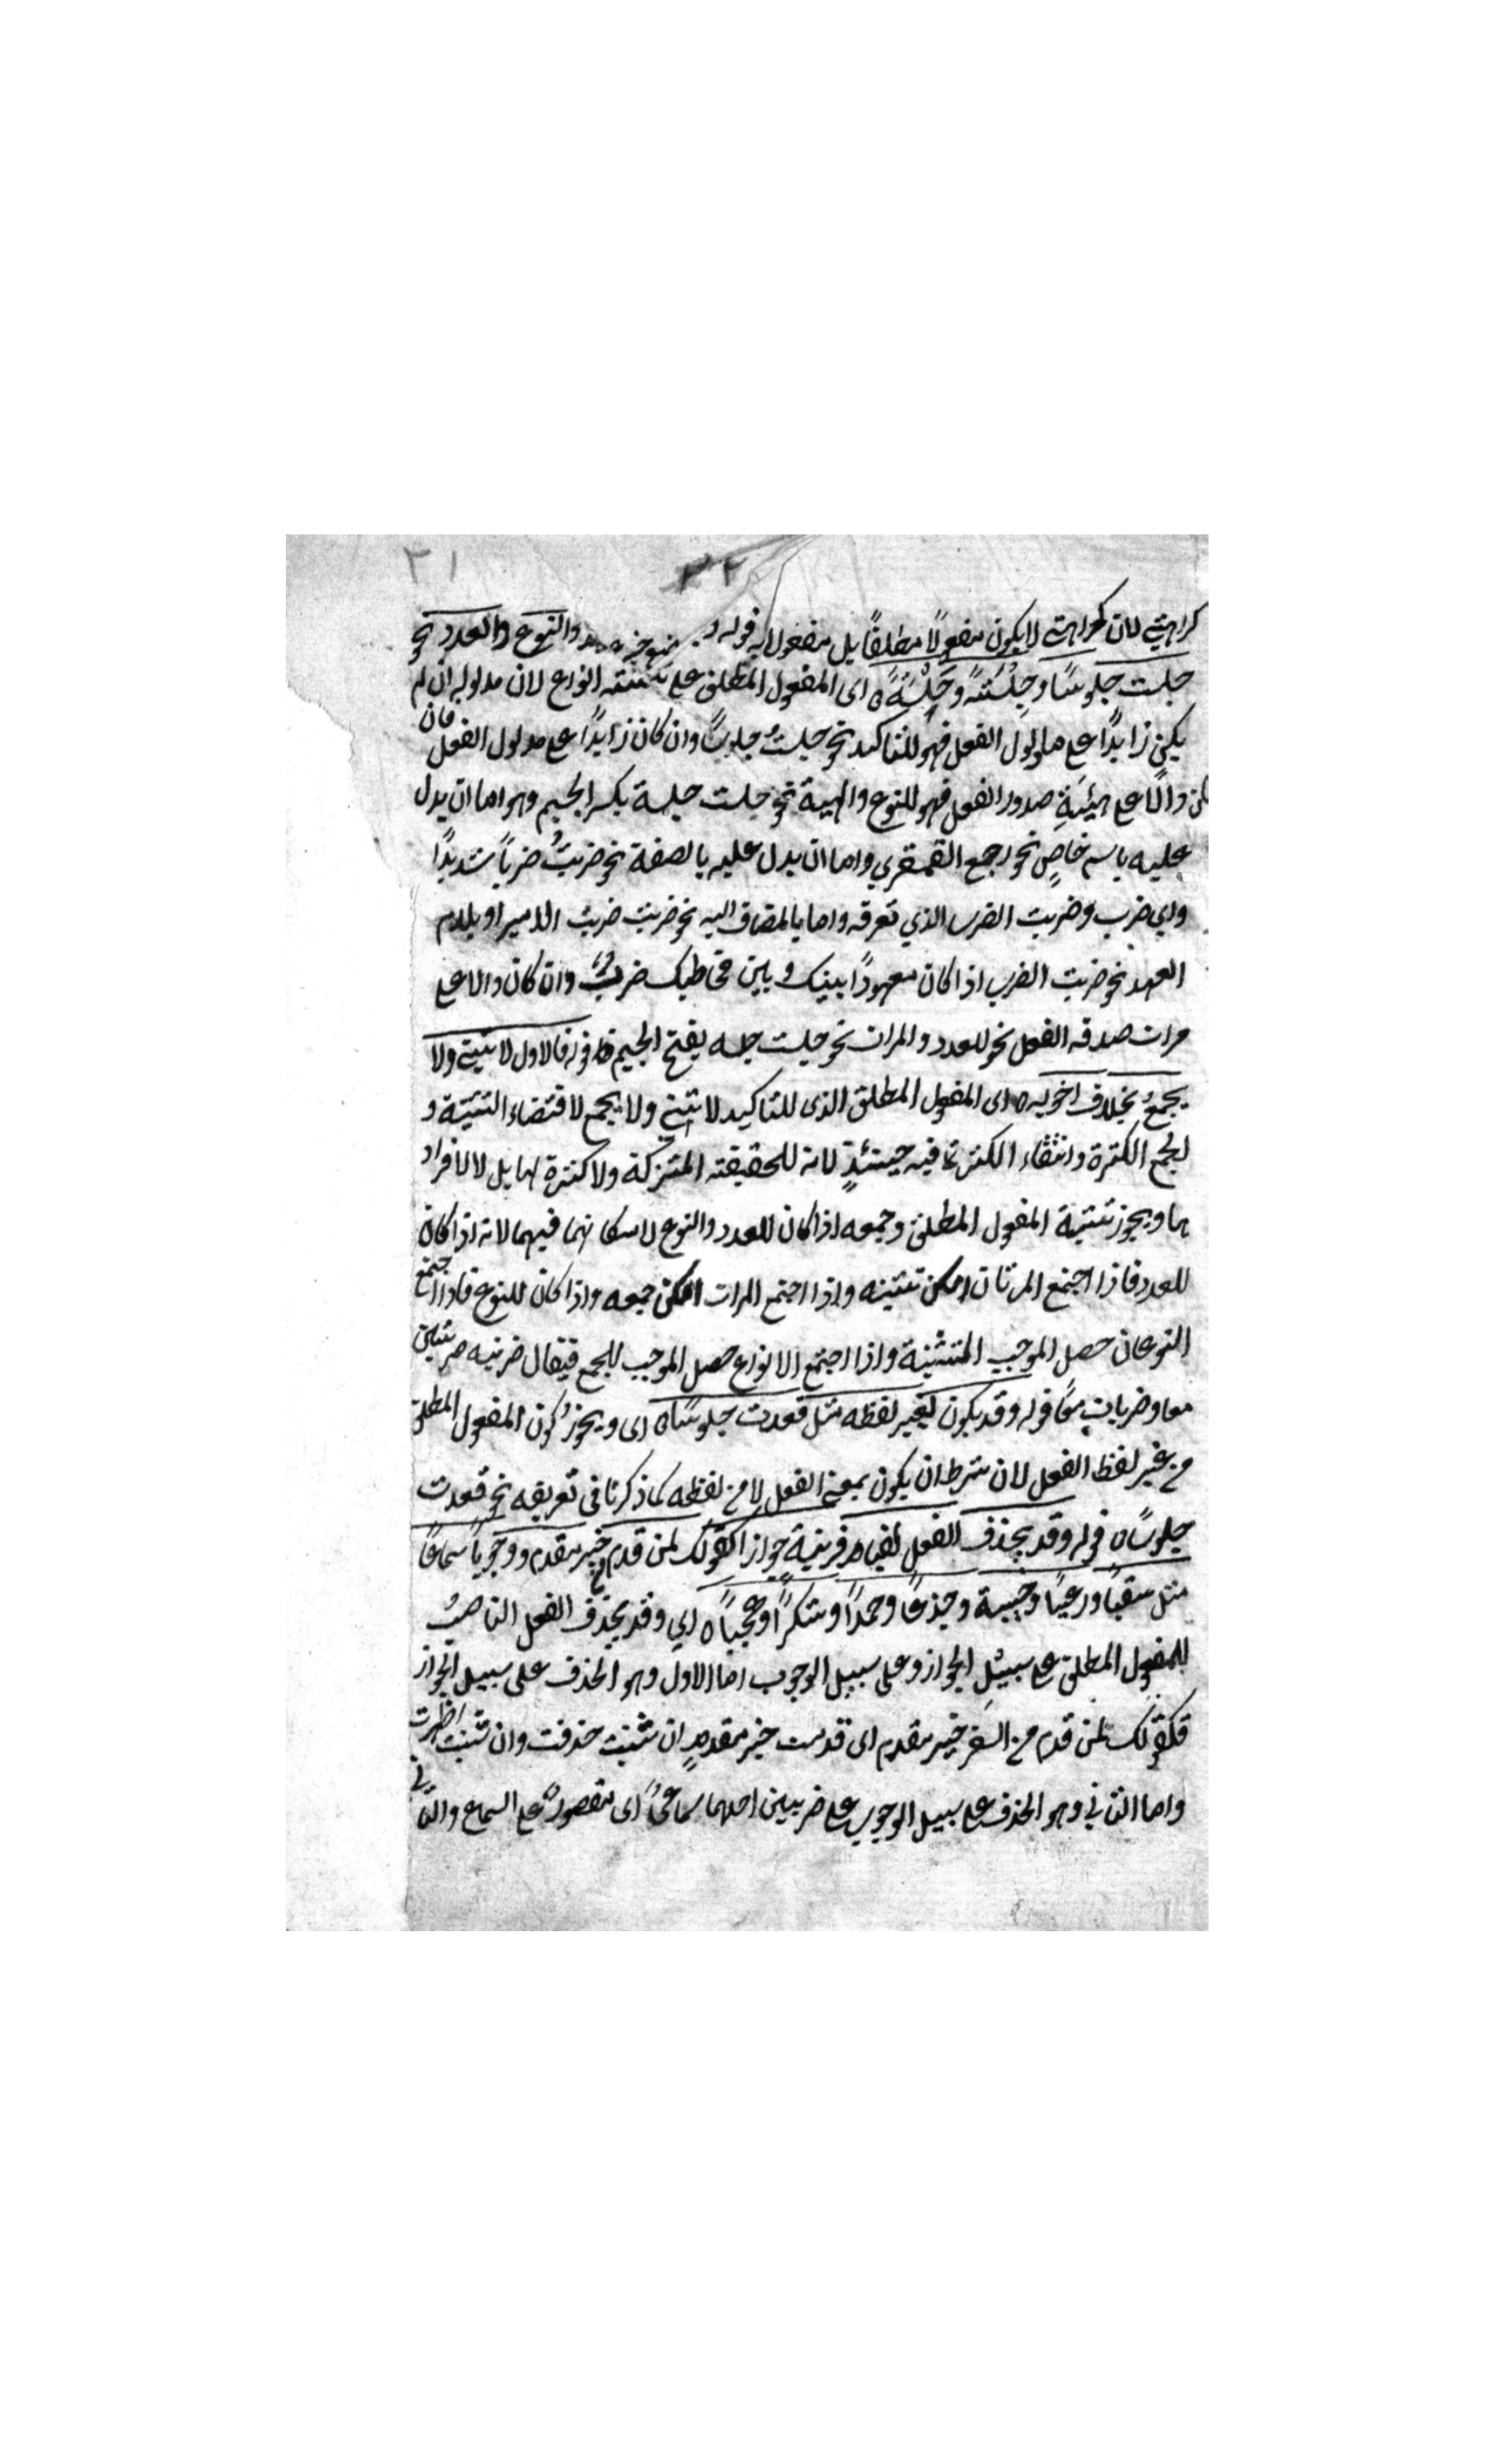 ٣١
٣٢
كراهيتي لان كراهيتي لا يكون مفعولا مطلقا بل مفعولا به قوله والنوع والعدد نحو
جلست جلوسًا وجِلْسَةً وجَلْسَةً ه اى المفعول المطلق على ثلثة انواع لان مدلوله ان لم
يكن زايدًا على مدلول الفعل فهو للتاكيد نحو جلستُ جلوسًا وان كان زايدًا على مدلول الفعل فان
كان دالًا على هيئةِ صدور الفعل فهو للنوع والهيئة نحو جلست جلسة بكسر الجيم وهو اما ان يدل
عليه باسم خاصٍ نحو رجع القهقرى واما ان يدل عليه بالصفة نحو ضربتُ ضربًا شديدًا
واي ضرب وضربت الضرب الذي تعرفه واما بالمضاف اليه نحو ضربت ضربَ الامير او بلام
العهد نحو ضربت الضرب اذا كان معهودًا بينك وبين مخاطبك وان كان دالا على
مرات صدقه الفعل نحو للعدد والمرات نحو جلست جلسه بفتح الجيم قوله فالاول لا يثنى ولا
يجمعُ بخلاف اخويه ه اى المفعول المطلق الذى للتاكيد لا يثنى ولا يجمع لاقتضاء التثنية و
الجمع الكثرة وانتفاء الكثرة فيه حينئذٍ لانه للحقيقة المشتركة ولا كثرة لها بل لافراد
ها ويجوز تثنية المفعول المطلق وجمعه اذا كان للعدد والنوع لامكانهما فيهما لانه اذا كان
للعدد فاذا اجتمع المرتان امكن تثنيته واذا اجتمع المرات امكن جمعه واذا كان للنوع فاذا اجتمع
النوعان حصل الموجب التثنية واذا اجتمع الانواع حصل الموجب للجمع فيقال ضربته ضربتين
معا وضربات معًا قوله وقد يكون بغير لفظه مثل قعدت جلوسًا ه اى ويجوزُ كون المفعول المطلق
من غير لفظ الفعل لان شرطه ان يكون بمعنى الفعل لا من لفظه كما ذكرنا فى تعريفه نحو قعدت
جلوسًا ه قوله وقد يحذف الفعل لقيام قرينة جوازا كقولك لمن قدم خير مقدم ووجوبًا سماعًا
مثل سقيًا ورعيًا وخيبة وجدعًا وحمدًا وشكرًا وعجبًا ه اي وقد يحذف الفعل الناصبُ
للمفعول المطلق على سبيل الجواز وعلى سبيل الوجوب اما الاول وهو الحذف على سبيل الجواز
فكقولك لمن قدم من السفر خير مقدم اى قدمت خير مقدمٍ ان شئت حذفت وان شئت اظهرت
واما الثاني وهو الحذف على سبيل الوجوب على ضربين احدهما سماعىٌ اى مقصورٌ على السماع والثانى